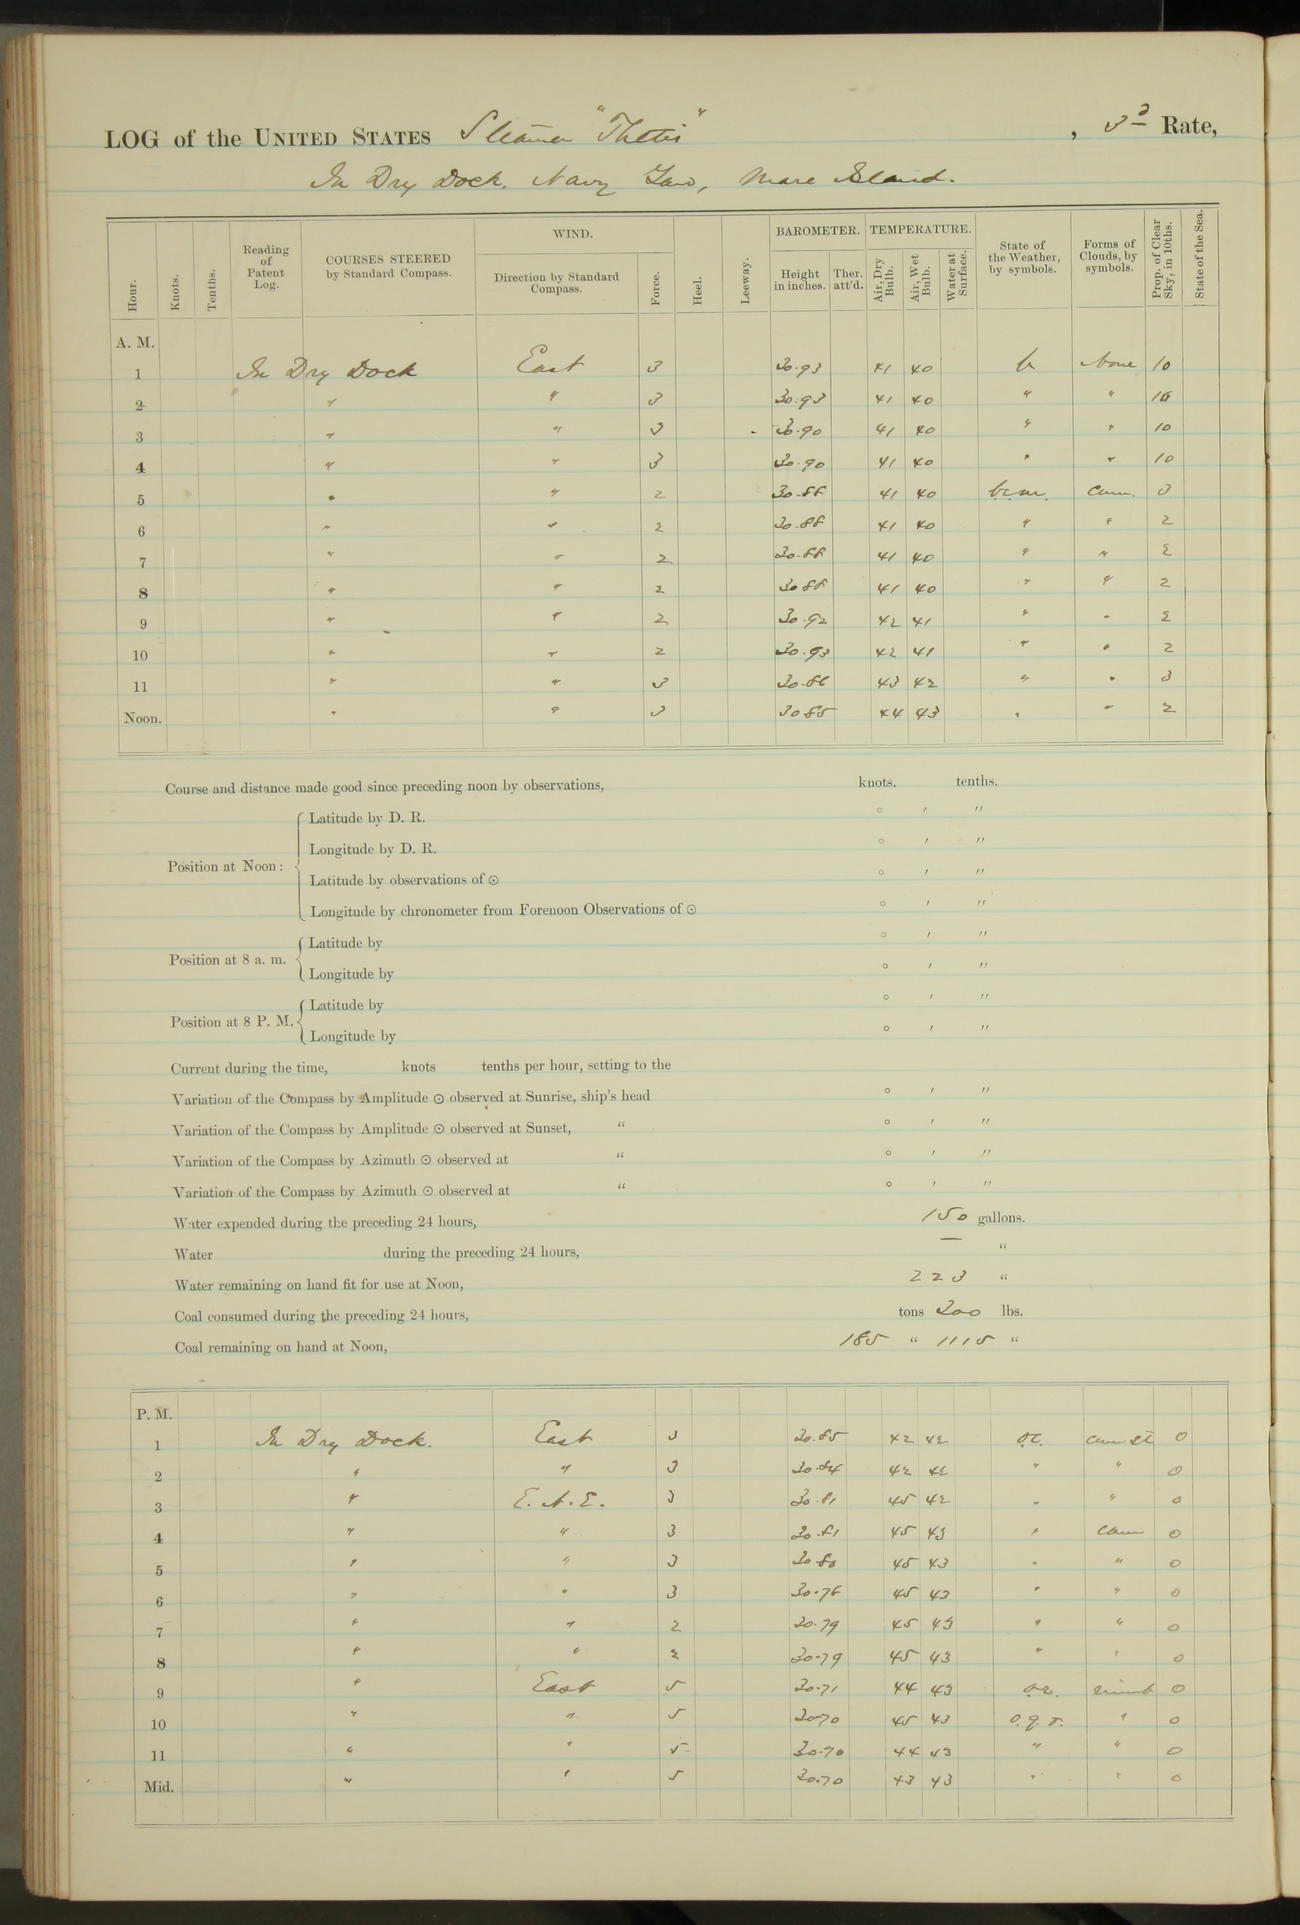 LOG of the UNITED STATES Steamer "Thetis", 3d Rate,
In Dry Dock, Navy Yard, Mare Island.
Hour. Knots. Tenths. Reading of Patent Log. COURSES STEERED by Standard Compass. WIND. Direction by Standard Compass. Force. Heel. Leeway. BAROMETER. Height in inches. Ther. att'd. TEMPERATURE. Air, Dry Bulb. Air, Wet Bulb. Water at Surface. State of the Weather, by symbols. Forms of Clouds, by symbols. Prop. of Clear Sky, in 10ths. State of the Sea.
A. M.
1 In Dry Dock East 3 30.93 41 40 b None 10
2 " " 3 30.93 41 40 " " 10
3 " " 3 30.90 41 40 " " 10
4 " " 3 30.90 41 40 " " 10
5 " " 2 30.88 41 40 b.c.m. Cum. 3
6 " " 2 30.88 41 40 " " 2
7 " " 2 30.88 41 40 " " 2
8 " " 2 30 88 41 40 " " 2
9 " " 2 30.92 42 41 " " 2
10 " " 2 30.93 42 41 " " 2
11 " " 3 30.86 43 42 " " 3
Noon. " " 3 30 85 44 43 " " 2
Course and distance made good since preceding noon by observations, knots. tenths.
Position at Noon: Latitude by D. R. ° ′ ″
Longitude by D. R. ° ′ ″
Latitude by observations of ☉ ° ′ ″
Longitude by chronometer from Forenoon Observations of ☉ ° ′ ″
Position at 8 a. m. Latitude by ° ′ ″
Longitude by ° ′ ″
Position at 8 P. M. Latitude by ° ′ ″
Longitude by ° ′ ″
Current during the time, knots tenths per hour, setting to the
Variation of the Compass by Amplitude ☉ observed at Sunrise, ship's head ° ′ ″
Variation of the Compass by Amplitude ☉ observed at Sunset, " ° ′ ″
Variation of the Compass by Azimuth ☉ observed at " ° ′ ″
Variation of the Compass by Azimuth ☉ observed at " ° ′ ″
Water expended during the preceding 24 hours, 150 gallons.
Water during the preceding 24 hours, — "
Water remaining on hand fit for use at Noon, 223 "
Coal consumed during the preceding 24 hours, tons 200 lbs.
Coal remaining on hand at Noon, 185 " 1115 "
P. M.
1 In Dry Dock. East 3 30.85 42 42 o.c. cum st 0
2 " " 3 30.84 42 42 " " 0
3 " E.N.E. 3 30.81 45 42 " " 0
4 " " 3 30.81 45 43 " Cum 0
5 " " 3 30.80 45 43 " " 0
6 " " 3 30.76 45 43 " " 0
7 " " 2 30.79 45 43 " " 0
8 " " 2 30.79 45 43 " " 0
9 " East 5 30.71 44 43 nimb 0
10 " " 5 3070 45 43 o.q.r. " 0
11 " " 5 30.70 44 43 " " 0
Mid. " " 5 30.70 43 43 " " 0